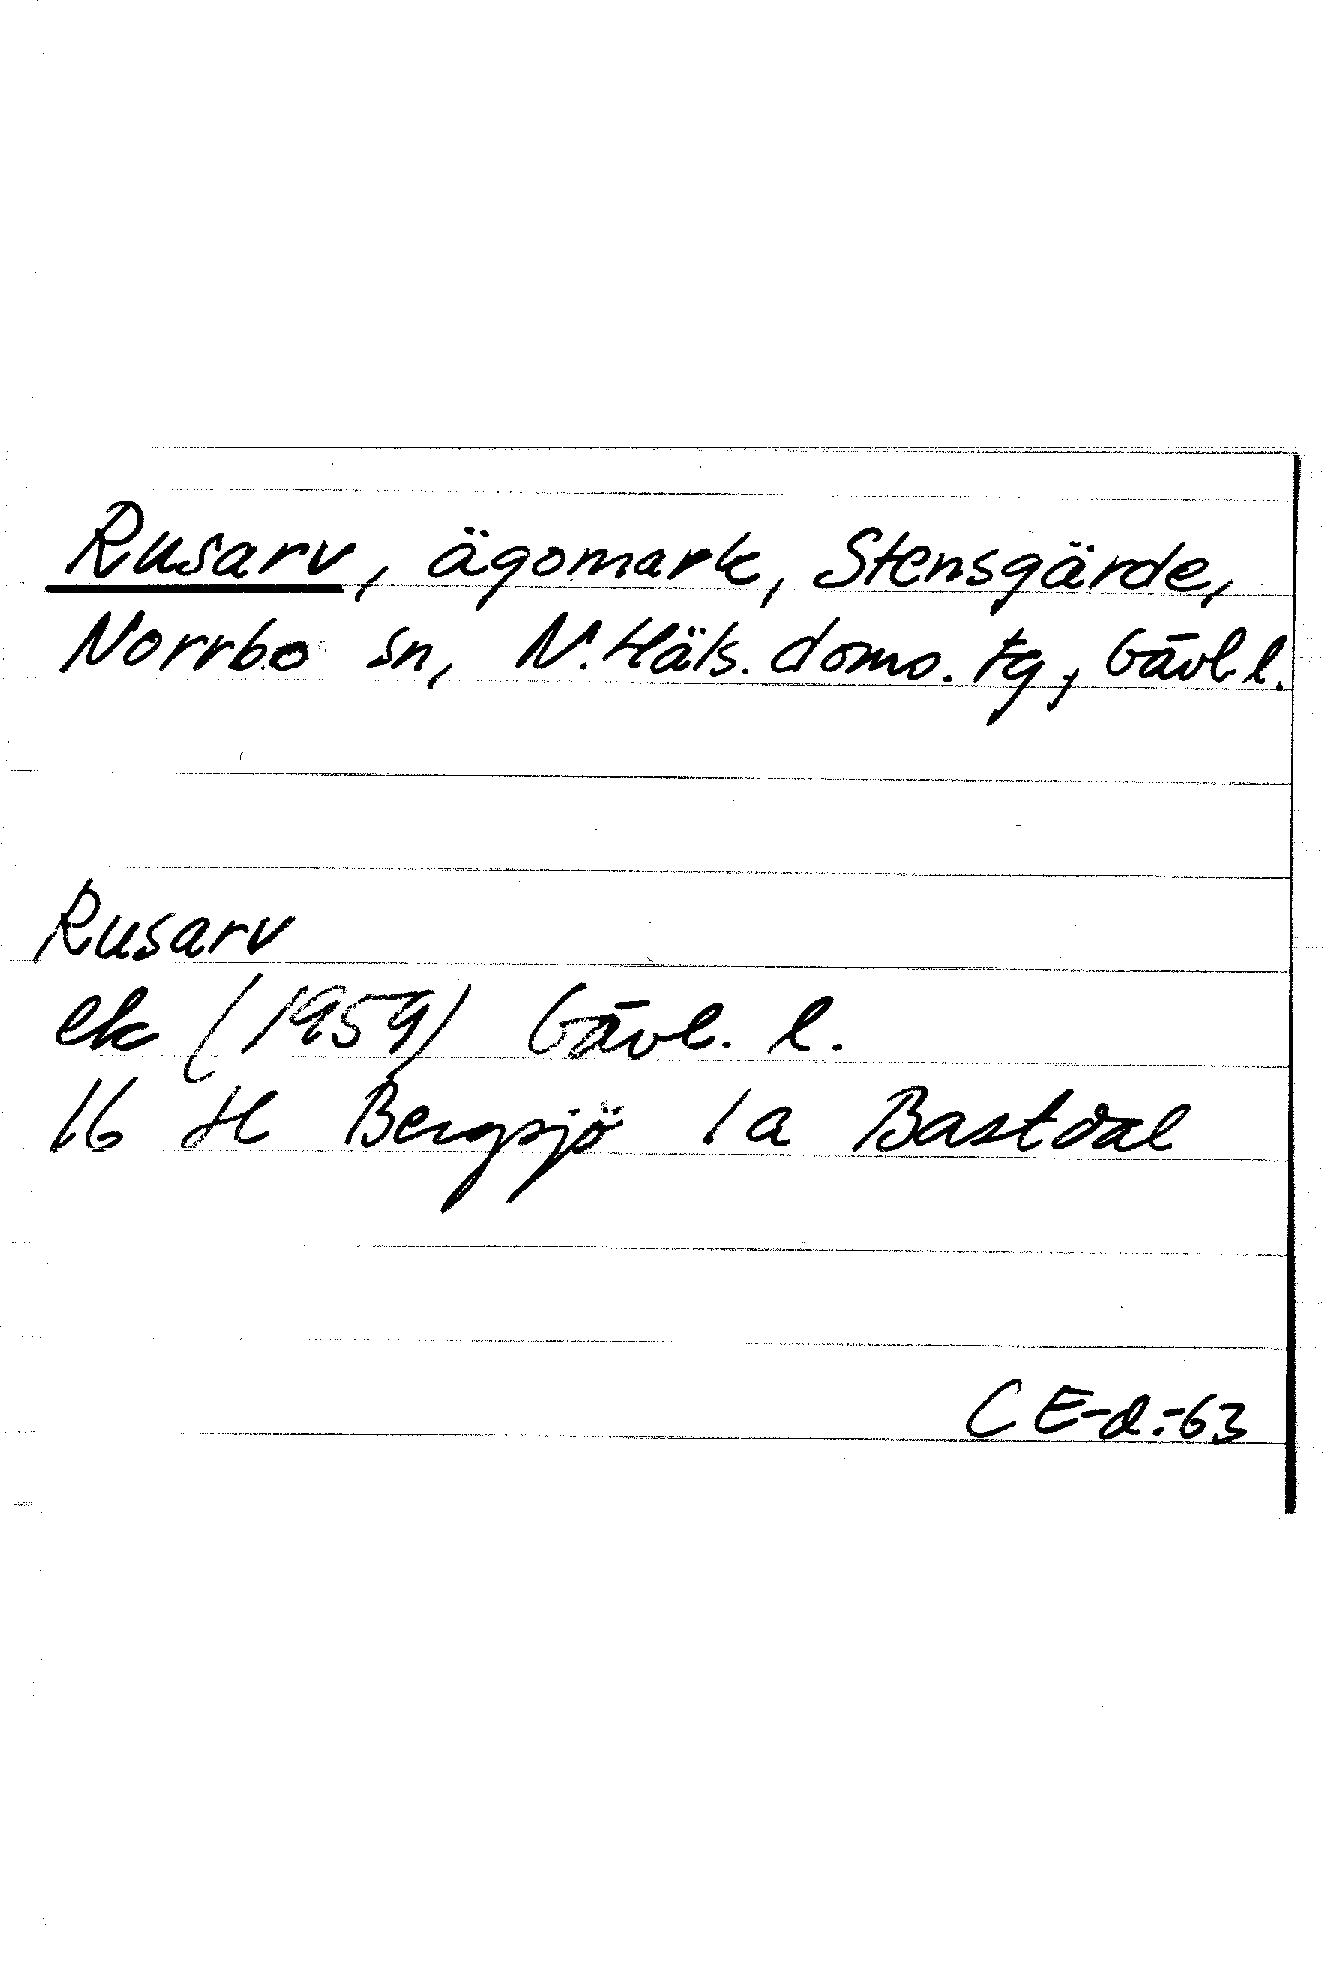 Rusarv, ägomark, Stensgärde,
Norrbo sn, N. Häls. doms. tg, Gävl. l.
Rusarv
ek (1959) Gävl. l.
16 H Bergsjö 1a Bastdal
CE-d.-63